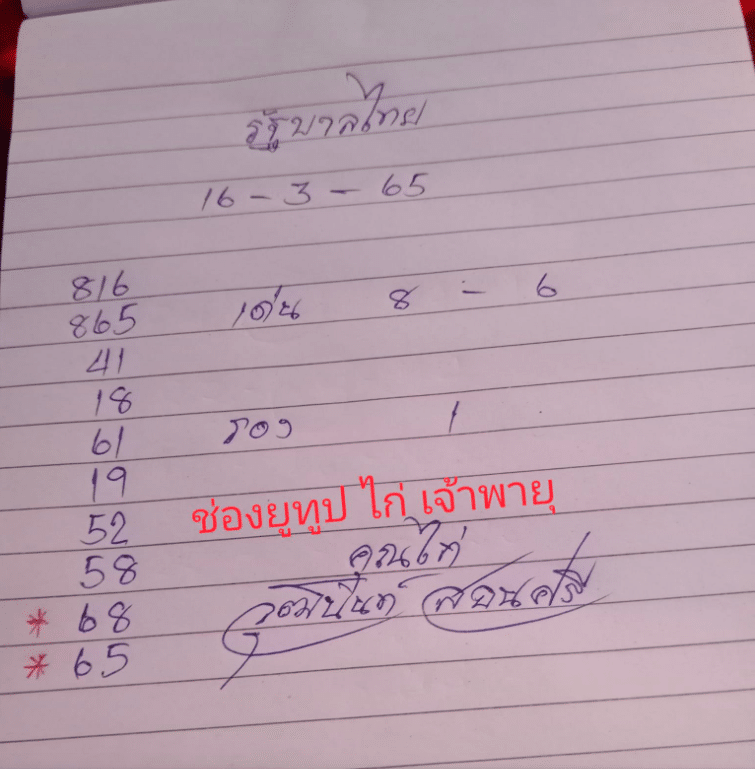 รัฐบาลไทย
16 - 3 - 65
816
865 เด่น 8 - 6
41
18
61 รอง 1
19
52 ช่องยูทูป ไก่ เจ้าพายุ
58 คุณไก่
* 68
* 65